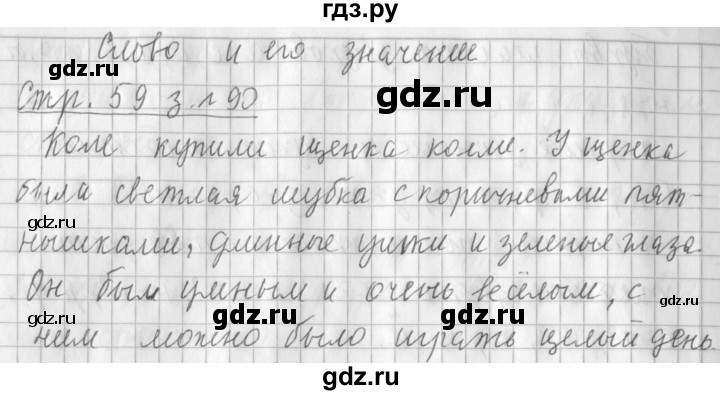 гдз.ру
Слово и его значение
gdz.ru
gdz.ru
Стр. 59 з. 190
gdz.ru
Коле купили щенка колли. У щенка
была светлая шубка с коричневыми пят-
gdz.ru
gdz.ru
нышками, длинные ушки и зеленые глаза.
gdz.ru
Он был умным и очень весёлым, с
gdz.ru
gdz.ru
ним можно было играть целый день.
gdz.ru